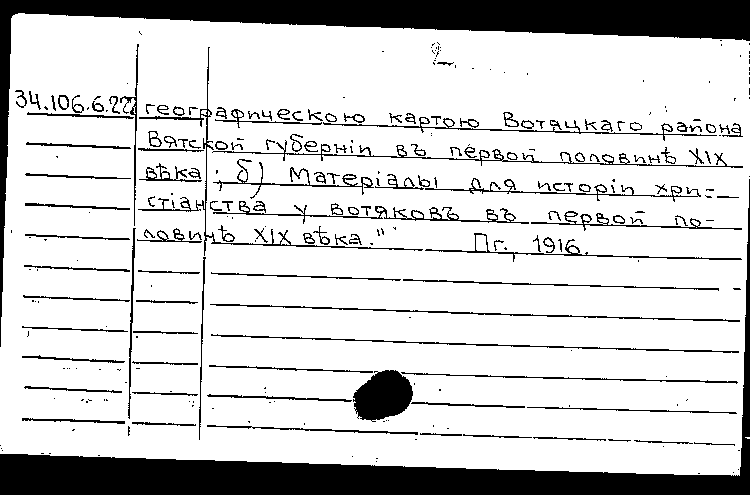 2
34.106.6.222 географическою картою Вотяцкаго района
Вятской губерніи въ первой половинѣ XIX
вѣка; б) Матеріалы для исторіи хри=
стіанства у вотяковъ въ первой по-
ловинѣ XIX вѣка." Пг., 1916.